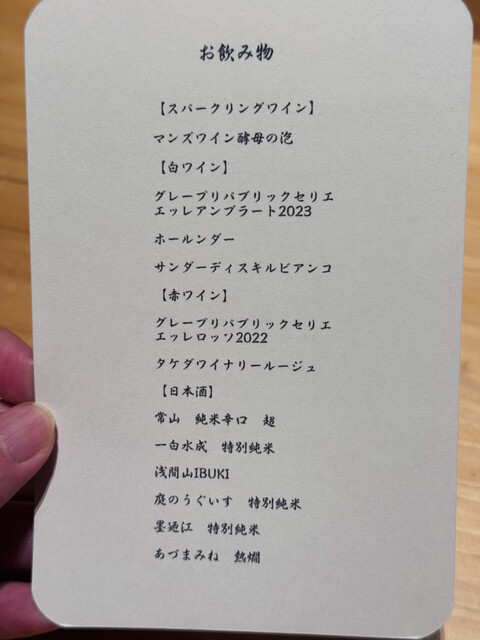 お飲み物
【スパークリングワイン】
マンズワイン酵母の泡
【白ワイン】
グレープリパブリックセリエ
エッレアンブラート2023
ホールンダー
サンダーディスキルビアンコ
【赤ワイン】
グレープリパブリックセリエ
エッレロッソ2022
タケダワイナリールージュ
【日本酒】
常山 純米辛口 超
一白水成 特別純米
浅間山IBUKI
庭のうぐいす 特別純米
墨廼江 特別純米
あづまみね 熱燗